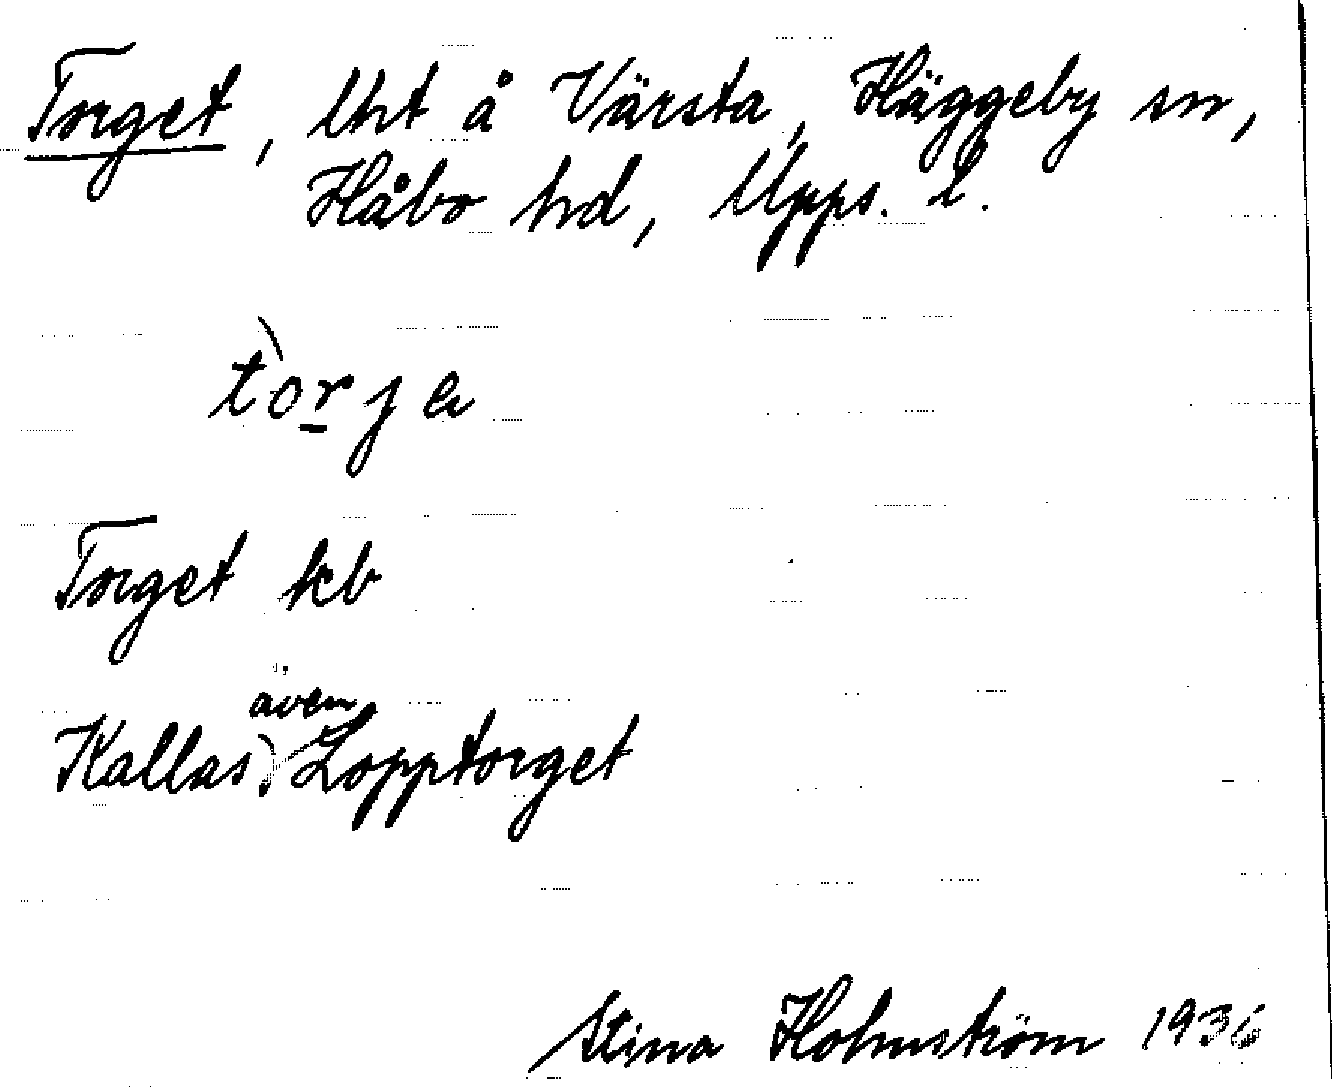 Torget, lht å Värsta, Häggeby sn,
Håbo hd, Upps. l.
tòrje
Torget kb
Kallas även Lopptorget
Stina Holmström 1936